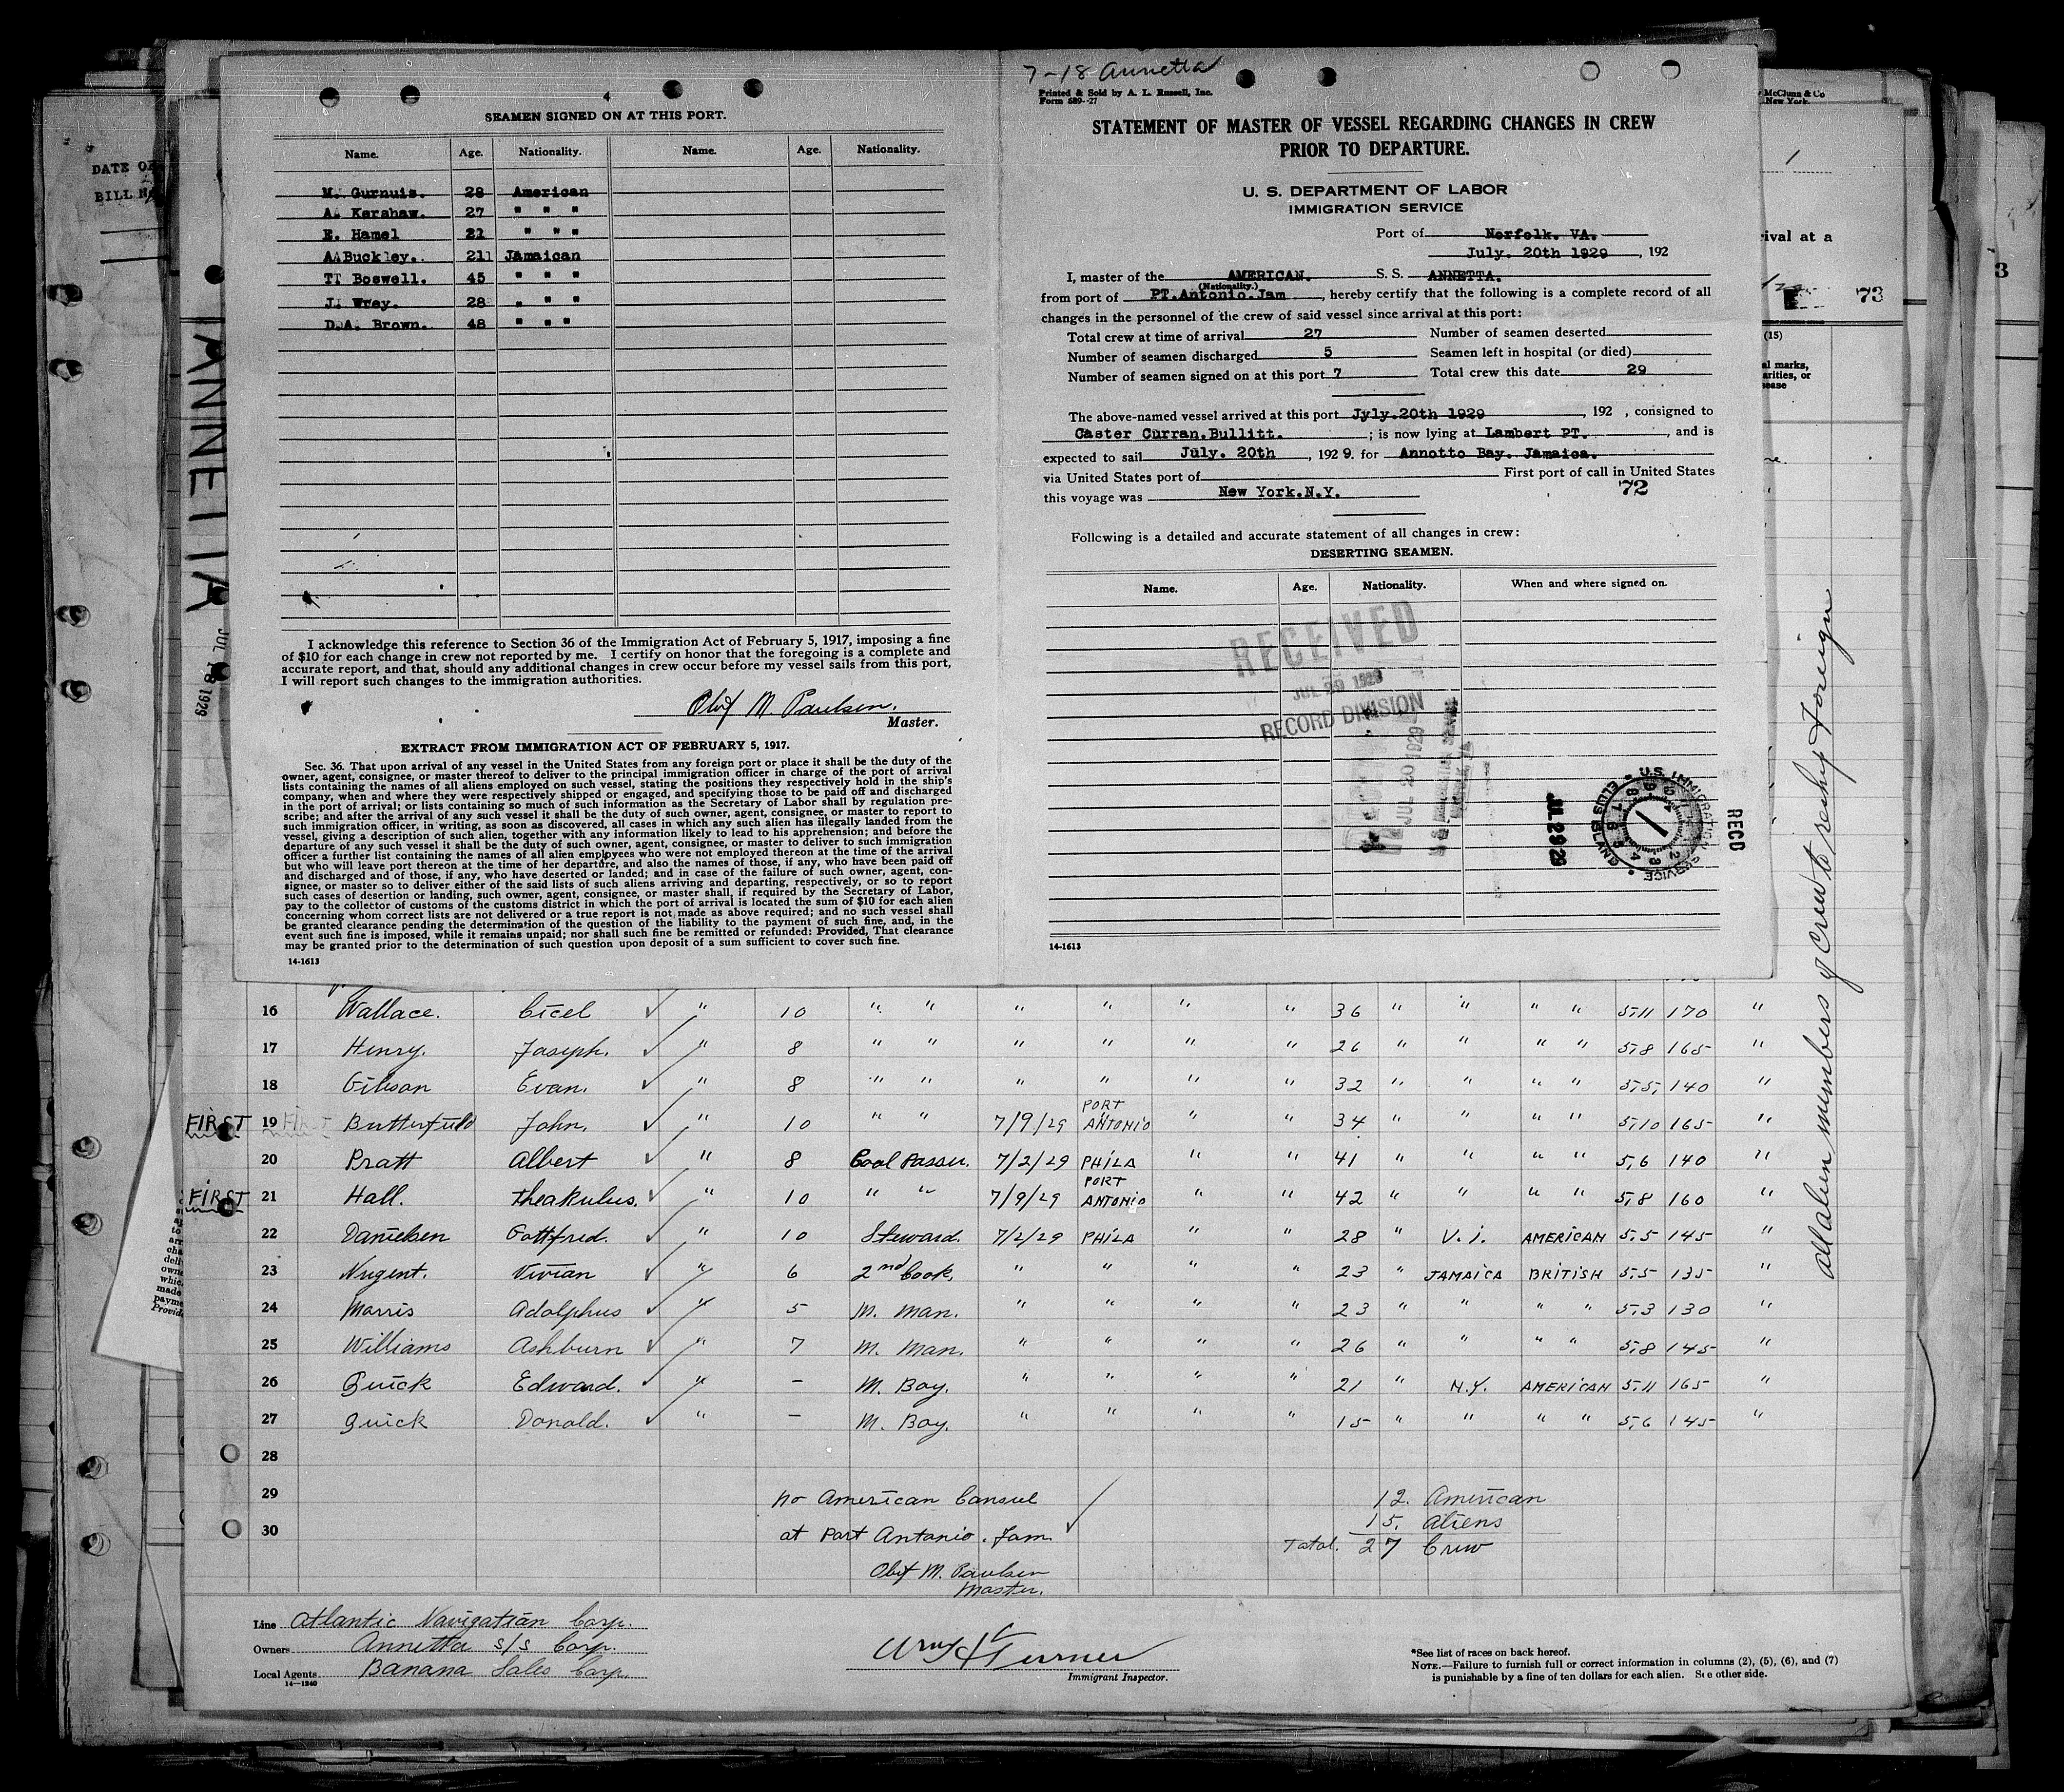 4
SEAMEN SIGNED ON AT THIS PORT.
Name. Age. Nationality. Name. Age. Nationality.
M. Gurnuis. 28 American
A. Karshaw. 27 " " "
E. Hamel 21 " " "
A Buckley. 21 Jamaican
T Boswell. 45 " " "
J. Wray. 28 " " "
D.A. Brown. 48 " " "
I acknowledge this reference to Section 36 of the Immigration Act of February 5, 1917, imposing a fine
of $10 for each change in crew not reported by me. I certify on honor that the foregoing is a complete and
accurate report, and that, should any additional changes in crew occur before my vessel sails from this port,
I will report such changes to the immigration authorities.
Olaf M. Paulsen.
Master.
EXTRACT FROM IMMIGRATION ACT OF FEBRUARY 5, 1917.
Sec. 36. That upon arrival of any vessel in the United States from any foreign port or place it shall be the duty of the
owner, agent, consignee, or master thereof to deliver to the principal immigration officer in charge of the port of arrival
lists containing the names of all aliens employed on such vessel, stating the positions they respectively hold in the ship's
company, when and where they were respectively shipped or engaged, and specifying those to be paid off and discharged
in the port of arrival; or lists containing so much of such information as the Secretary of Labor shall by regulation pre-
scribe; and after the arrival of any such vessel it shall be the duty of such owner, agent, consignee, or master to report to
such immigration officer, in writing, as soon as discovered, all cases in which any such alien has illegally landed from the
vessel, giving a description of such alien, together with any information likely to lead to his apprehension; and before the
departure of any such vessel it shall be the duty of such owner, agent, consignee, or master to deliver to such immigration
officer a further list containing the names of all alien employees who were not employed thereon at the time of the arrival
but who will leave port thereon at the time of her departure, and also the names of those, if any, who have been paid off
and discharged and of those, if any, who have deserted or landed; and in case of the failure of such owner, agent, con-
signee, or master so to deliver either of the said lists of such aliens arriving and departing, respectively, or so to report
such cases of desertion or landing, such owner, agent, consignee, or master shall, if required by the Secretary of Labor,
pay to the collector of customs of the customs district in which the port of arrival is located the sum of $10 for each alien
concerning whom correct lists are not delivered or a true report is not made as above required; and no such vessel shall
be granted clearance pending the determination of the question of the liability to the payment of such fine, and, in the
event such fine is imposed, while it remains unpaid; nor shall such fine be remitted or refunded: Provided, That clearance
may be granted prior to the determination of such question upon deposit of a sum sufficient to cover such fine.
14-1613
7-18 Annetta
Printed & Sold by A. L. Russell, Inc.
Form 689--27
STATEMENT OF MASTER OF VESSEL REGARDING CHANGES IN CREW
PRIOR TO DEPARTURE.
U. S. DEPARTMENT OF LABOR
IMMIGRATION SERVICE
Port of Norfolk. VA.
July. 20th 1929, 192
I, master of the AMERICAN. S. S. ANNETTA.
(Nationality.)
from port of PT.Antonio.Jam, hereby certify that the following is a complete record of all
changes in the personnel of the crew of said vessel since arrival at this port:
Total crew at time of arrival 27 Number of seamen deserted
Number of seamen discharged 5 Seamen left in hospital (or died)
Number of seamen signed on at this port 7 Total crew this date 29
The above-named vessel arrived at this port Jyly.20th 1929, 192 , consigned to
Caster Curran.Bullitt. ; is now lying at Lambert PT. , and is
expected to sail July. 20th , 192 9. for Annotto Bay. Jamaica.
via United States port of First port of call in United States
this voyage was New York.N.Y. 72
Following is a detailed and accurate statement of all changes in crew:
DESERTING SEAMEN.
Name. Age. Nationality. When and where signed on.
RECEIVED
JUL 29 1929
RECORD DIVISION
JUL 20 1929
U.S. IMMIGRATION SERVICE
ELLIS ISLAND
JUL 29 29
RECD
14-1613
DATE OF
BILL
ANNETTA
JUL 18 1929
McClunn & Co
New York.
1
ival at a
73
3
(15)
al marks,
arities, or
sease
all alien members of crew to reship foreign
16 Wallace. Cicel " 10 " " " " " " 36 " " " " 5,11 170 "
17 Henry. Joseph. " 8 " " " " " " 26 " " " " 5,8 165 "
18 Gibson Evan. " 8 " " " " " " 32 " " " " 5,5, 140 "
FIRST 19 Butterfield John. " 10 " " 7/9/29 PORT ANTONIO " " 34 " " " " 5,10 165 "
20 Pratt Albert " 8 Coal Passer. 7/2/29 PHILA " " 41 " " " " 5,6 140 "
FIRST 21 Hall. Theakulus. " 10 " " 7/9/29 PORT ANTONIO " " 42 " " " " 5,8 160 "
22 Danielsen Gottfred. " 10 Steward. 7/2/29 PHILA " " 28 " V.I. AMERICAN 5,5 145 "
23 Nugent. Vivian " 6 2nd Cook. " " " " 23 " JAMAICA BRITISH 5,5 135 "
24 Morris Adolphus " 5 M. Man. " " " " 23 " " " " 5,3 130 "
25 Williams Ashburn " 7 M. Man. " " " " 26 " " " " 5,8 145 "
26 Quick Edward. " – M. Boy. " " " " 21 " N.Y. AMERICAN 5,11 165 "
27 Quick Donald. " – M. Boy. " " " " 15 " " " " 5,6 145 "
28
29 no American Consul 12. American
15. Aliens
30 at Port Antonio. Jam. Total. 27 Crew
Olaf M. Paulsen
Master.
Line Atlantic Navigation Corp.
Owners Annetta s/s Corp.
Local Agents Banana Sales Corp.
14—1240
Wm H Turner
Immigrant Inspector.
*See list of races on back hereof.
NOTE.—Failure to furnish full or correct information in columns (2), (5), (6), and (7)
is punishable by a fine of ten dollars for each alien. See other side.